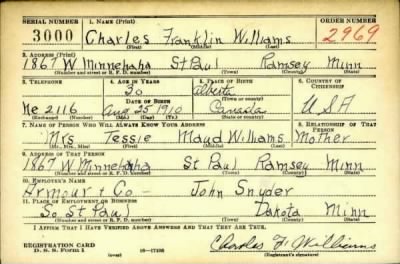 SERIAL NUMBER 1. NAME (Print) ORDER NUMBER
3000 Charles Franklin Williams 2969
(First) (Middle) (Last)
2. ADDRESS (Print)
1867 W Minnehaha St Paul Ramsey Minn
(Number and street or R. F. D. number) (Town) (County) (State)
3. TELEPHONE 4. AGE IN YEARS 5. PLACE OF BIRTH 6. COUNTRY OF CITIZENSHIP
30 Alberta
DATE OF BIRTH (Town or county)
Ne 2116 Aug 25 1910 Canada USA
(Exchange) (Number) (Mo.) (Day) (Yr.) (State or country)
7. NAME OF PERSON WHO WILL ALWAYS KNOW YOUR ADDRESS 8. RELATIONSHIP OF THAT PERSON
Mrs Tessie Maud Williams Mother
(Mr., Mrs., Miss) (First) (Middle) (Last)
9. ADDRESS OF THAT PERSON
1867 W Minnehaha St Paul Ramsey Minn
(Number and street or R. F. D. number) (Town) (County) (State)
10. EMPLOYER'S NAME
Armour & Co - John Snyder
11. PLACE OF EMPLOYMENT OR BUSINESS
So St Paul Dakota Minn
(Number and street or R. F. D. number) (Town) (County) (State)
I AFFIRM THAT I HAVE VERIFIED ABOVE ANSWERS AND THAT THEY ARE TRUE.
REGISTRATION CARD
D. S. S. Form 1 (over) 16-17105 Charles F. Williams
(Registrant's signature)